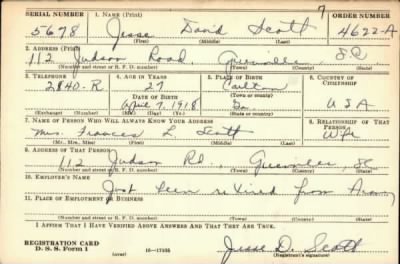 7
SERIAL NUMBER 1. NAME (Print) ORDER NUMBER
5678 Jesse David Scott 4622-A
(First) (Middle) (Last)
2. ADDRESS (Print)
112 Judson Road, Greenville S.C.
(Number and street or R. F. D. number) (Town) (County) (State)
3. TELEPHONE 4. AGE IN YEARS 5. PLACE OF BIRTH 6. COUNTRY OF CITIZENSHIP
2840-R 27
DATE OF BIRTH (Town or county)
April 7, 1918 Ga USA
(Exchange) (Number) (Mo.) (Day) (Yr.) (State or country)
7. NAME OF PERSON WHO WILL ALWAYS KNOW YOUR ADDRESS 8. RELATIONSHIP OF THAT PERSON
Mrs. Frances L Scott Wife
(Mr., Mrs., Miss) (First) (Middle) (Last)
9. ADDRESS OF THAT PERSON
112 Judson Rd., Greenville, SC
(Number and street or R. F. D. number) (Town) (County) (State)
10. EMPLOYER'S NAME
Just been retired from Army
11. PLACE OF EMPLOYMENT OR BUSINESS
(Number and street or R. F. D. number) (Town) (County) (State)
I AFFIRM THAT I HAVE VERIFIED ABOVE ANSWERS AND THAT THEY ARE TRUE.
REGISTRATION CARD
D. S. S. Form 1 (over) Jesse D. Scott
(Registrant's signature)